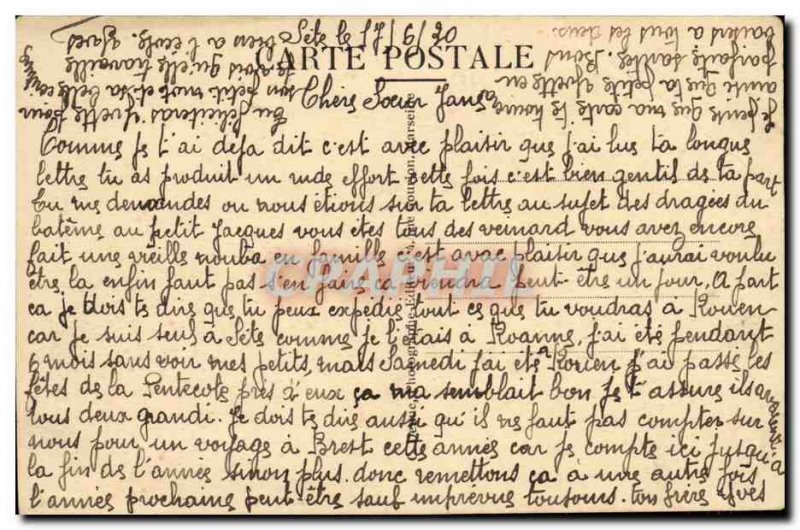 Sète le 17/6/30
CARTE POSTALE
Chère Sœur Jane
Comme je t'ai déja dit c'est avec plaisir que j'ai lus ta longue
lettre tu as produit un rude effort cette fois c'est bien gentil de ta part
tu me demandes ou nous étions sur ta lettre au sujet des dragées du
batême au petit Jacques vous êtes tous des veinard vous avez encore
fait une vieille nouba en famille c'est avec plaisir que j'aurai voulu
être la enfin faut pas s'en faire ca viendra peut être un jour. A part
ca je dois te dire que tu peux expédié tout ce que tu voudras à Rouen
car je suis seul à Sète comme je l'étais à Roanne, j'ai été pendant
6 mois sans voir mes petits, mais Samedi j'ai été a Rouen j'ai passé les
fêtes de la Pentecote près d'eux ça ma semblait bon je t'assure ils
tous deux grandi. Je dois te dire aussi qu'il ne faut pas compter sur
nous pour un voyage à Brest cette année car je compte ici jusqu'a
la fin de l'année sinon plus. donc remettons ça à une autre fois
l'année prochaine peut-être sauf imprévue toujours. ton frère Yves
Tu féliciteras Yvette pour
son petit mot et sa belle
je vois qu'elle travaille
bien a l'école. Yves
Je pense que ma carte te
aussi que ta petite Yvette en
parfaite santées. Bons
baisers a tous les deux.
CPAPHIL
Marseille